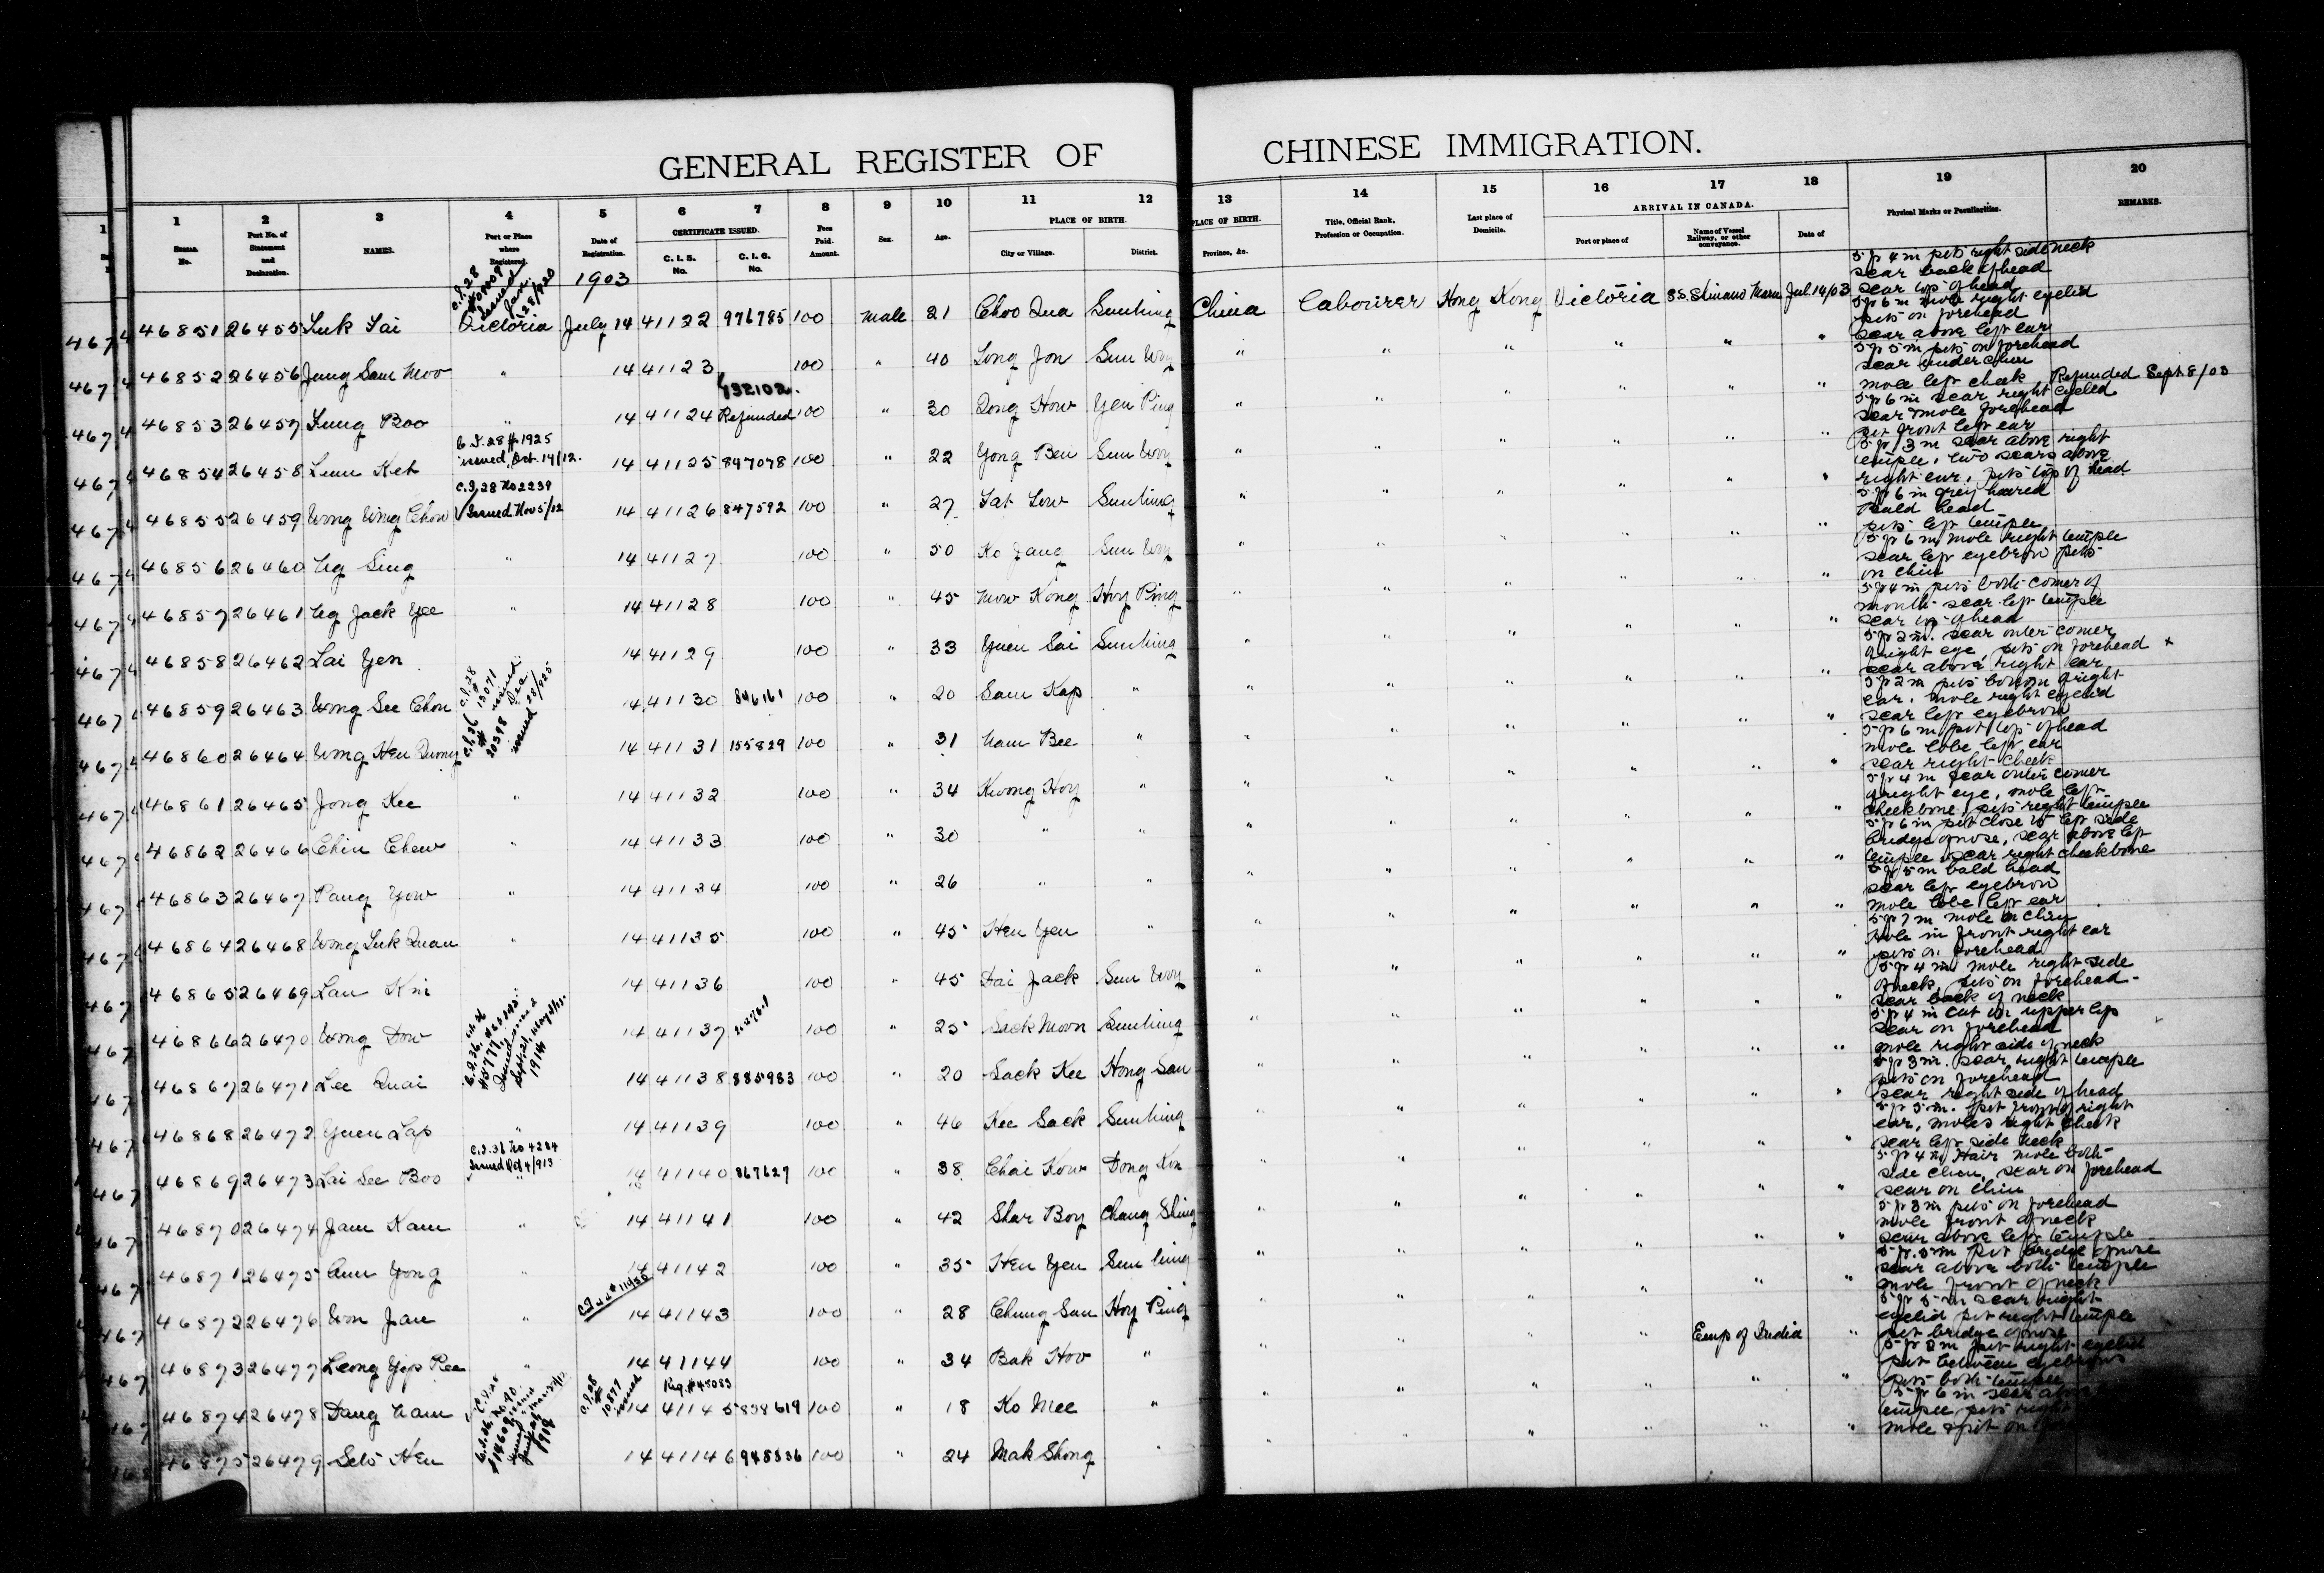 GENERAL REGISTER OF CHINESE IMMIGRATION.
1 2 3 4 5 6 7 8 9 10 11 12 13 14 15 16 17 18 19 20
Serial No.
Port No. of Statement and Declaration.
NAMES.
Port or Place where Registered.
Date of Registration.
CERTIFICATE ISSUED.
C. I. 5. No.
C. I. 6. No.
Fees Paid. Amount.
Sex.
Age.
PLACE OF BIRTH.
City or Village.
District.
PLACE OF BIRTH.
Province, &c.
Title, Official Rank, Profession or Occupation.
Last place of Domicile.
ARRIVAL IN CANADA.
Port or place of
Name of Vessel Railway, or other conveyance.
Date of
Physical Marks or Peculiarities.
REMARKS.
1903
46851 26455 Luk Tai Victoria July 14 41122 976785 100 Male 21 Choo Qua Sunning China Labourer Hong Kong Victoria SS. Shinano Maru Jul. 14/03 5 ft 4 in pits right side neck scar back of head scar top of head
46852 26456 Jung Sam Moo " 14 41123 100 " 40 Long Jon Sun Woy " " " " " " 5 ft 6 in mole right eyelid pits on forehead scar above left ear
46853 26457 Fung Boo " 14 41124 Refunded 100 " 30 Dong How Yen Ping " " " " " " 5 ft 5 in pits on forehead scar under chin mole left cheek Refunded Sept. 8/03
46854 26458 Lum Ket C.I. 28 # 1925 issued, Oct. 14/12. 14 41125 847078 100 " 22 Yong Ben Sun Woy " " " " " " 5 ft 6 in scar right eyelid scar & mole forehead pit front left ear
46855 26459 Wong Wing Chow C.I. 28 No 2239 Issued Nov 5/12 14 41126 847592 100 " 27 Tat Low Sunning " " " " " " 5 ft 3 in scar above right temple, two scars above right ear, pits top of head
46856 26460 Ng Sing " 14 41127 100 " 50 Ko Jang Sun Woy " " " " " " 5 ft 6 in grey haired Bald head pits left temple
46857 26461 Ng Jack Yee " 14 41128 100 " 45 Mow Kong Hoy Ping " " " " " " 5 ft 6 in mole right temple scar left eyebrow pits on chin
46858 26462 Lai Yen 14 41129 100 " 33 Yuen Sai Sunning " " " " " " 5 ft 4 in pits both corner of mouth scar left temple scar top of head
46859 26463 Wong See Chou 14 41130 846161 100 " 20 Sam Kap " " " " " " " 5 ft 2 in. scar outer corner of right eye, pits on forehead scar above right ear
46860 26464 Wong Hen Qumg 14 41131 155829 100 " 31 Nam Bee " " " " " " " 5 ft 2 in pits bottom of right ear, mole right eyelid scar left eyebrow
46861 26465 Jong Kee " 14 41132 100 " 34 Kwong Hoy " " " " " " " 5 ft 6 in pit top of head mole lobe left ear scar right cheek
46862 26466 Chin Chew " 14 41133 100 " 30 " " " " " " " " 5 ft 4 in scar outer corner of right eye, mole left cheek bone, pits right temple
46863 26467 Pang Yow " 14 41134 100 " 26 " " " " " " " " 5 ft 6 in pit close to left side bridge of nose, scar above left temple & scar right cheekbone
46864 26468 Wong Luk Quan " 14 41135 100 " 45 Hen Yen " " " " " " " 5 ft 5 in bald head scar left eyebrow mole lobe left ear
46865 26469 Lau Kni 14 41136 100 " 45 Hai Jack Sun Woy " " " " " " 5 ft 7 in mole on chin mole in front right ear pits on forehead
46866 26470 Wong Dow 14 41137 100 " 25 Sack Moon Sunning " " " " " " 5 ft 4 in mole right side of neck, pits on forehead scar back of neck
46867 26471 Lee Quai 14 41138 885983 100 " 20 Sack Kee Hong San " " " " " " 5 ft 4 in cut on upper lip scar on forehead mole right side of neck
46868 26472 Yuen Lap " 14 41139 100 " 46 Kee Sack Sunning " " " " " " 5 ft 3 in. scar right temple pits on forehead scar right side of head
46869 26473 Lai See Boo C.I. 36 No 4284 Issued Oct 4/913 14 41140 867627 100 " 38 Chai Kow Dong Kon " " " " " " 5 ft 5 in. pit front of right ear, moles right cheek scar left side neck
46870 26474 Jam Kam " 14 41141 100 " 42 Shar Boy Chang Shing " " " " " " 5 ft 4 in Hair mole both side chin, scar on forehead scar on chin
46871 26475 Chin Yong " 14 41142 100 " 35 Hen Yen Sun ning " " " " " " 5 ft 3 in pits on forehead mole front of neck scar above left temple
46872 26476 Won Jan " 14 41143 100 " 28 Chung San Hoy Ping " " " " " " 5 ft. 5 in pit bridge of nose scar above both temple mole front of neck
46873 26477 Leong Yip Ree " 14 41144 100 " 34 Bak Hoo " " " " " Emp of India " 5 ft 5 in scar right eyelid pit right temple pit bridge of nose
46874 26478 Dang Nam 14 41145 838619 100 " 18 Ko Mee " " " " " " 5 ft 2 in pit right eyelid pit between eyebrows pits both temple
46875 26479 Seto Hen 14 41146 948836 100 " 24 Mak Shong " " " " " " 5 ft 6 in scar above temple pits right mole & pit on